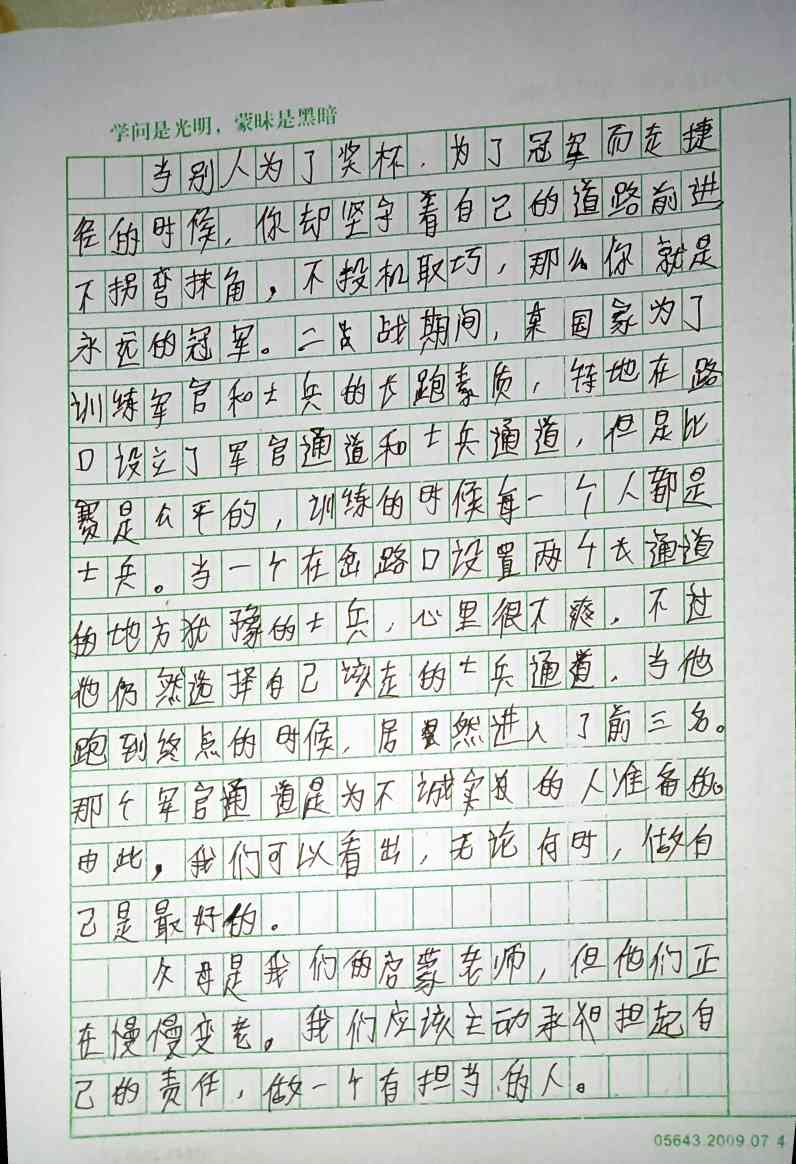 学问是光明，蒙昧是黑暗
当别人为了奖杯，为了冠军而走捷
径的时候，你却坚守着自己的道路前进
不拐弯抹角，不投机取巧，那么你就是
永远的冠军。二战期间，某国家为了
训练军官和士兵的长跑素质，特地在路
口设立了军官通道和士兵通道，但是比
赛是公平的，训练的时候每一个人都是
士兵。当一个在岔路口设置两个长通道
的地方犹豫的士兵，心里很不爽，不过
他仍然选择自己该走的士兵通道，当他
跑到终点的时候，居然进入了前三名。
那个军官通道是为不诚实的人准备的。
由此，我们可以看出，无论何时，做自
己是最好的。
父母是我们的启蒙老师，但他们正
在慢慢变老。我们应该主动承担担起自
己的责任，做一个有担当的人。
05643.2009.07 4